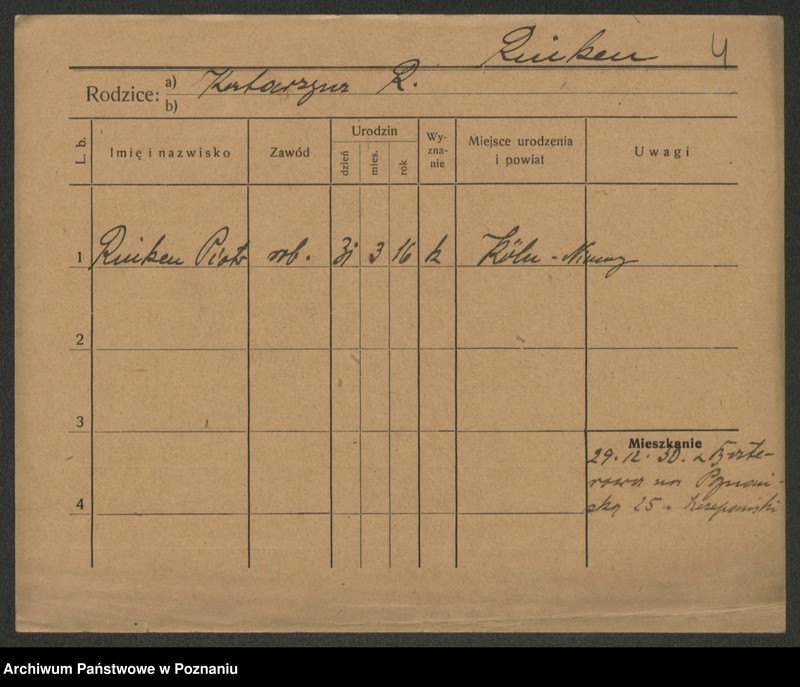 Rinken 4
Rodzice: a) Katarzyna R.
b)
L. b. Imię i nazwisko Zawód Urodzin dzień mies. rok Wy-zna-nie Miejsce urodzenia i powiat Uwagi
1 Rinken Piotr rob. 31 3 16 k Köln - Niemcy
2
3
Mieszkanie
29.12.30. z
na Poznań-
ska 25
4
Archiwum Państwowe w Poznaniu